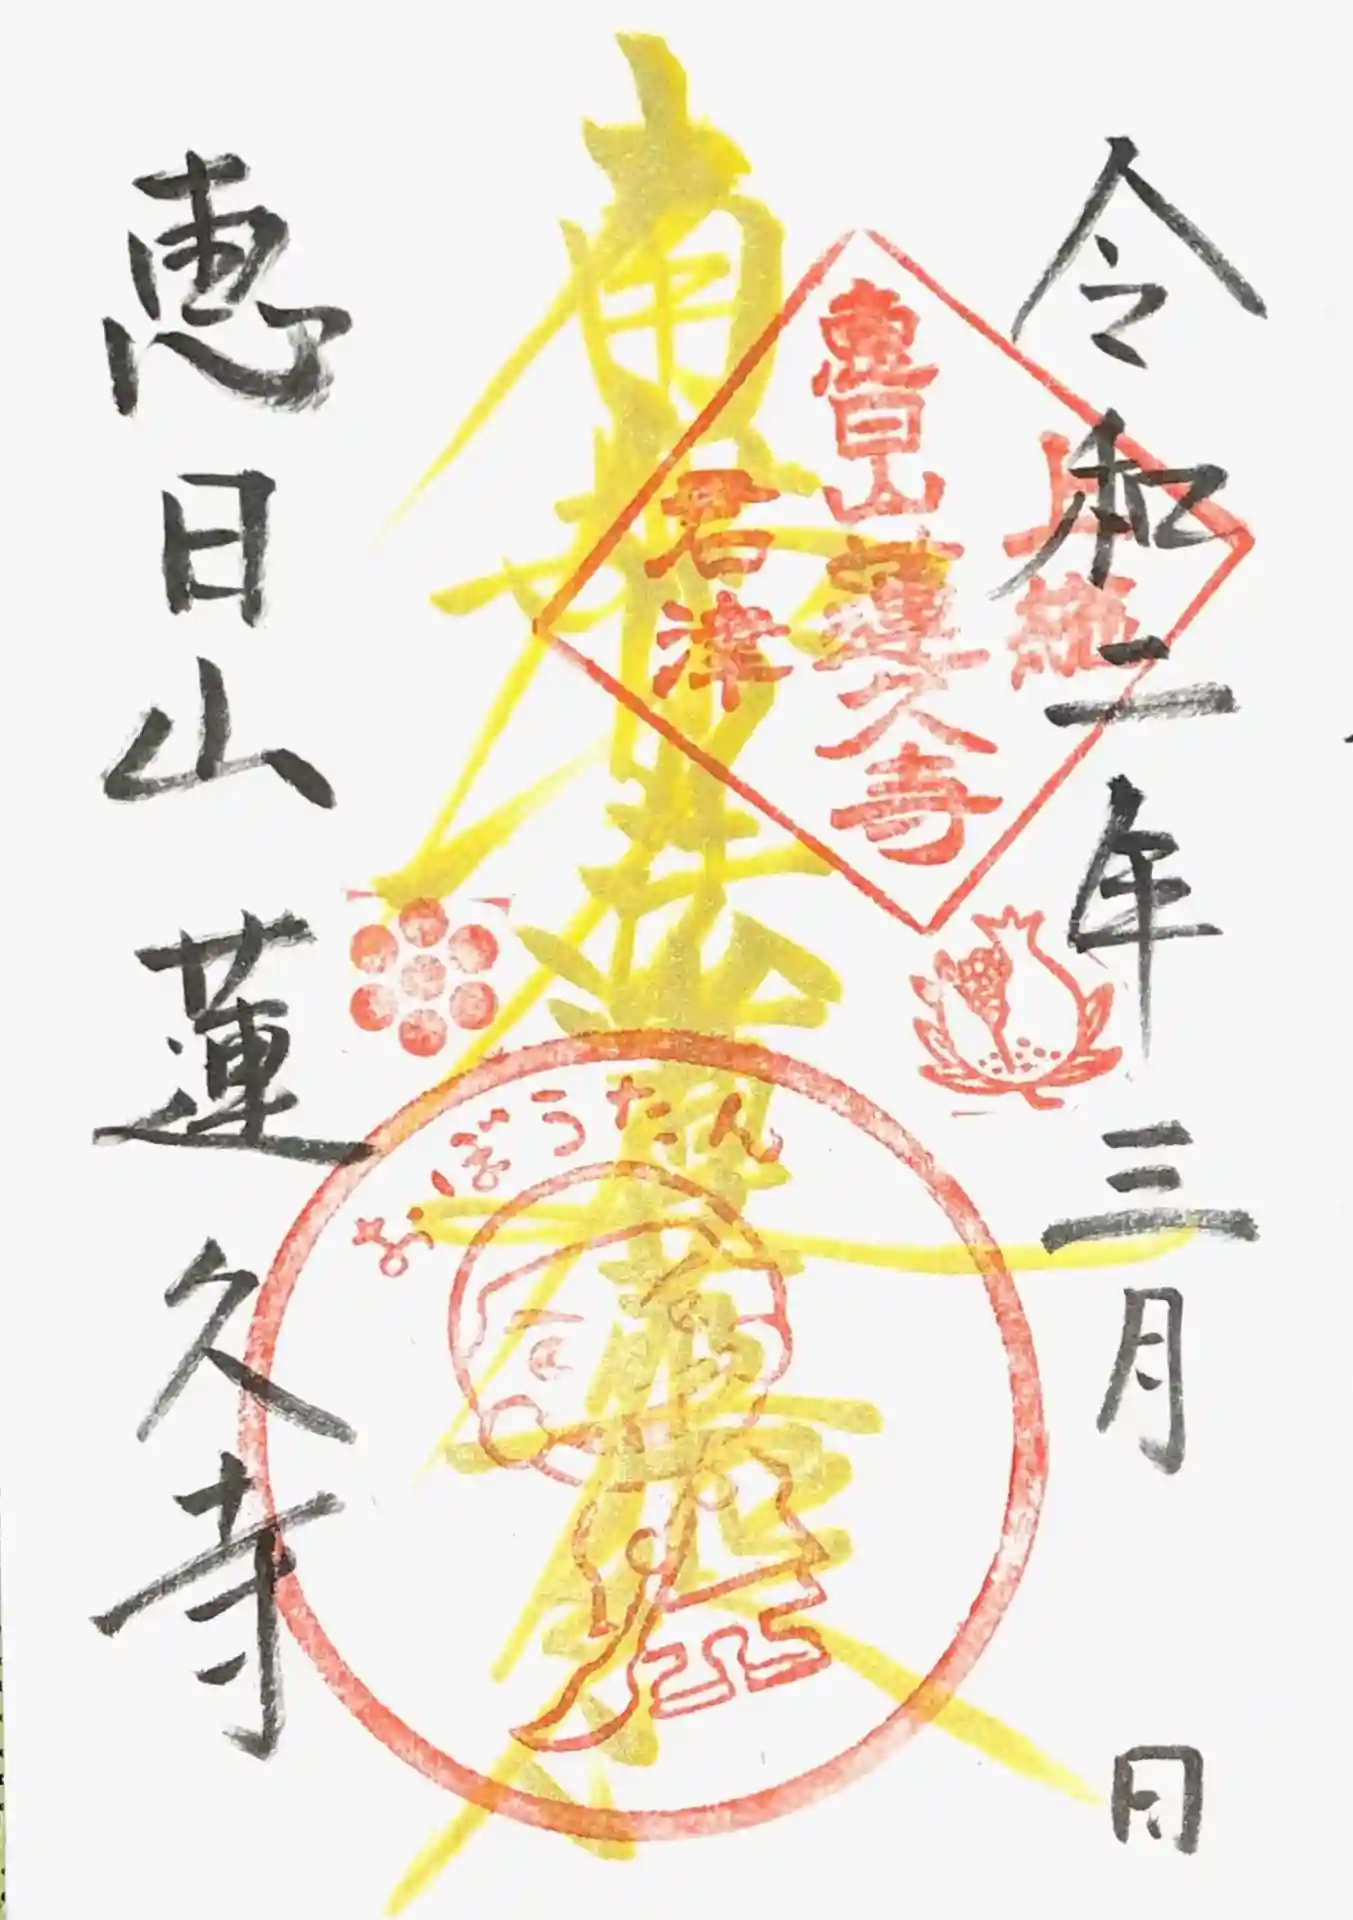 令和二年三月 日
上総
惠日山蓮久寺
君津
南無妙法蓮華経
おぼうたん
恵日山蓮久寺